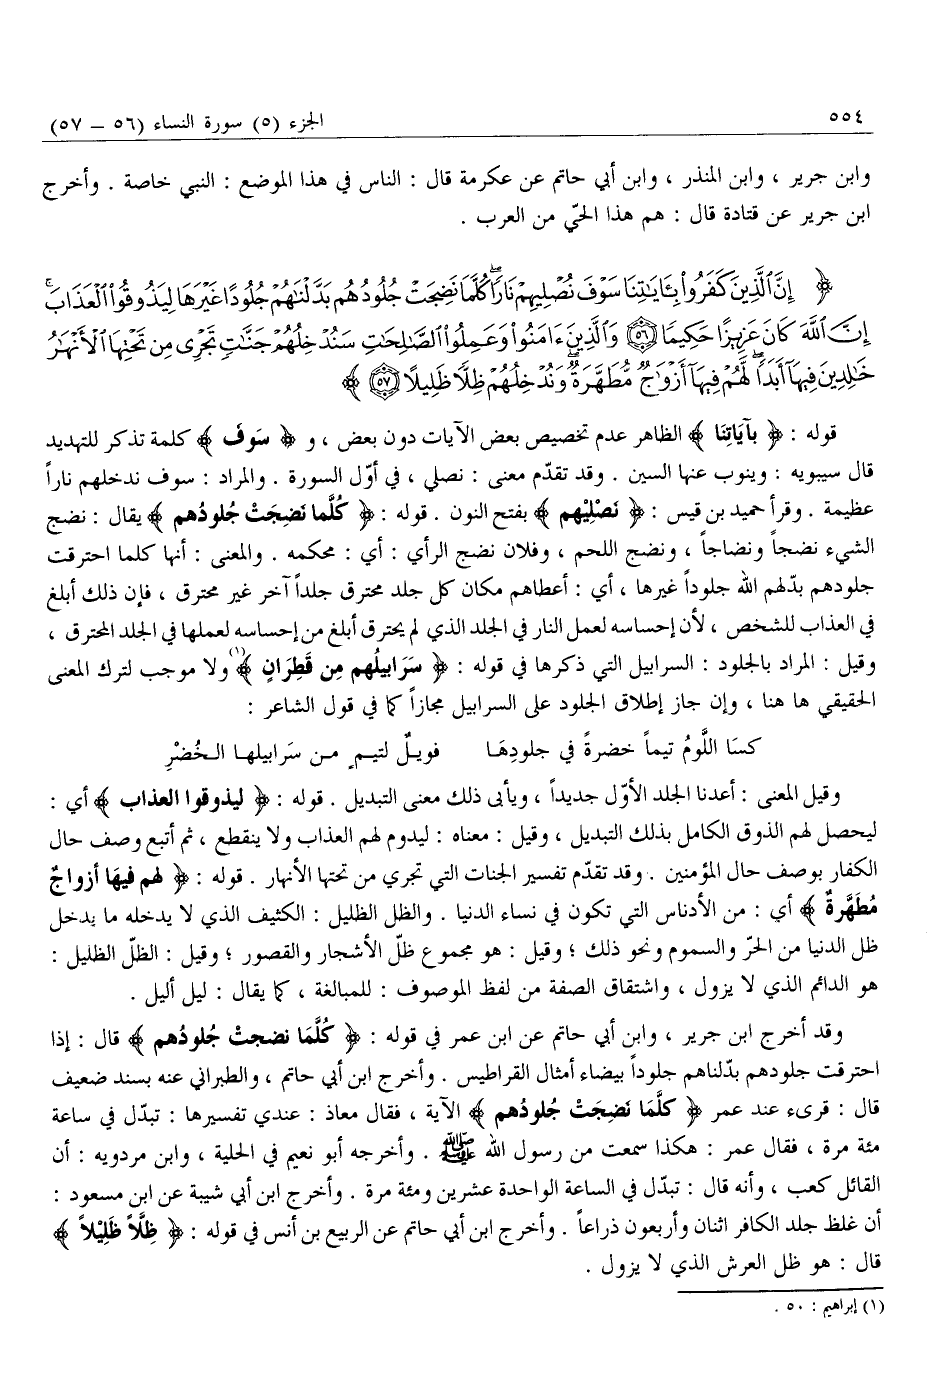 ٥٥٤ الجزء (٥) سورة النساء (٥٦ – ٥٧)
وابن جرير ، وابن المنذر ، وابن أبي حاتم عن عكرمة قال : الناس في هذا الموضع : النبي خاصة . وأخرج
ابن جرير عن قتادة قال : هم هذا الحيّ من العرب .
﴿ إِنَّ ٱلَّذِينَ كَفَرُوا۟ بِـَٔايَـٰتِنَا سَوْفَ نُصْلِيهِمْ نَارًۭا كُلَّمَا نَضِجَتْ جُلُودُهُم بَدَّلْنَـٰهُمْ جُلُودًا غَيْرَهَا لِيَذُوقُوا۟ ٱلْعَذَابَ ۗ
إِنَّ ٱللَّهَ كَانَ عَزِيزًا حَكِيمًۭا ٥٦ وَٱلَّذِينَ ءَامَنُوا۟ وَعَمِلُوا۟ ٱلصَّـٰلِحَـٰتِ سَنُدْخِلُهُمْ جَنَّـٰتٍۢ تَجْرِى مِن تَحْتِهَا ٱلْأَنْهَـٰرُ
خَـٰلِدِينَ فِيهَآ أَبَدًۭا ۖ لَّهُمْ فِيهَآ أَزْوَٰجٌۭ مُّطَهَّرَةٌۭ ۖ وَنُدْخِلُهُمْ ظِلًّۭا ظَلِيلًا ٥٧ ﴾
قوله : ﴿ بآيَاتِنَا ﴾ الظاهر عدم تخصيص بعض الآيات دون بعض ، و ﴿ سَوفَ ﴾ كلمة تذكر للتهديد
قال سيبويه : وينوب عنها السين . وقد تقدّم معنى : نصلي ، في أوّل السورة . والمراد : سوف ندخلهم ناراً
عظيمة . وقرأ حميد بن قيس : ﴿ نَصْلِيْهِم ﴾ بفتح النون . قوله : ﴿ كُلَّما نَضِجَتْ جُلودُهم ﴾ يقال : نضج
الشيء نضجاً ونضاجاً ، ونضج اللحم ، وفلان نضج الرأي : أي : محكمه . والمعنى : أنها كلما احترقت
جلودهم بدّلهم الله جلوداً غيرها ، أي : أعطاهم مكان كل جلد محترق جلداً آخر غير محترق ، فإن ذلك أبلغ
في العذاب للشخص ، لأن إحساسه لعمل النار في الجلد الذي لم يحترق أبلغ من إحساسه لعملها في الجلد المحترق ،
وقيل : المراد بالجلود : السرابيل التي ذكرها في قوله : ﴿ سَرَابيلُهم مِن قَطِرَانٍ ﴾(١) ولا موجب لترك المعنى
الحقيقي ها هنا ، وإن جاز إطلاق الجلود على السرابيل مجازاً كما في قول الشاعر :
كسَا اللَّومُ تيماً خضرةً في جلودِهَا فويلٌ لتيمٍ من سَرابيلها الخُضْرِ
وقيل المعنى : أعدنا الجلد الأوّل جديداً ، ويأبى ذلك معنى التبديل . قوله : ﴿ ليذوقوا العذاب ﴾ أي :
ليحصل لهم الذوق الكامل بذلك التبديل ، وقيل : معناه : ليدوم لهم العذاب ولا ينقطع ، ثم أتبع وصف حال
الكفار بوصف حال المؤمنين . وقد تقدّم تفسير الجنات التي تجري من تحتها الأنهار . قوله : ﴿ لهم فيهَا أزواجٌ
مُطَهَّرةٌ ﴾ أي : من الأدناس التي تكون في نساء الدنيا . والظل الظليل : الكثيف الذي لا يدخله ما يدخل
ظل الدنيا من الحرّ والسموم ونحو ذلك ؛ وقيل : هو مجموع ظلّ الأشجار والقصور ؛ وقيل : الظلّ الظليل :
هو الدائم الذي لا يزول ، واشتقاق الصفة من لفظ الموصوف : للمبالغة ، كما يقال : ليل أليل .
وقد أخرج ابن جرير ، وابن أبي حاتم عن ابن عمر في قوله : ﴿ كُلَّمَا نضجتْ جُلودُهم ﴾ قال : إذا
احترقت جلودهم بدّلناهم جلوداً بيضاء أمثال القراطيس . وأخرج ابن أبي حاتم ، والطبراني عنه بسند ضعيف
قال : قرىء عند عمر ﴿ كلَّمَا نَضِجَتْ جُلودُهم ﴾ الآية ، فقال معاذ : عندي تفسيرها : تبدّل في ساعة
مئة مرة ، فقال عمر : هكذا سمعت من رسول الله ﷺ . وأخرجه أبو نعيم في الحلية ، وابن مردويه : أن
القائل كعب ، وأنه قال : تبدّل في الساعة الواحدة عشرين ومئة مرة . وأخرج ابن أبي شيبة عن ابن مسعود :
أن غلظ جلد الكافر اثنان وأربعون ذراعاً . وأخرج ابن أبي حاتم عن الربيع بن أنس في قوله : ﴿ ظِلَّاً ظَلِيْلاً ﴾
قال : هو ظل العرش الذي لا يزول .
(١) إبراهيم : ٥٠ .